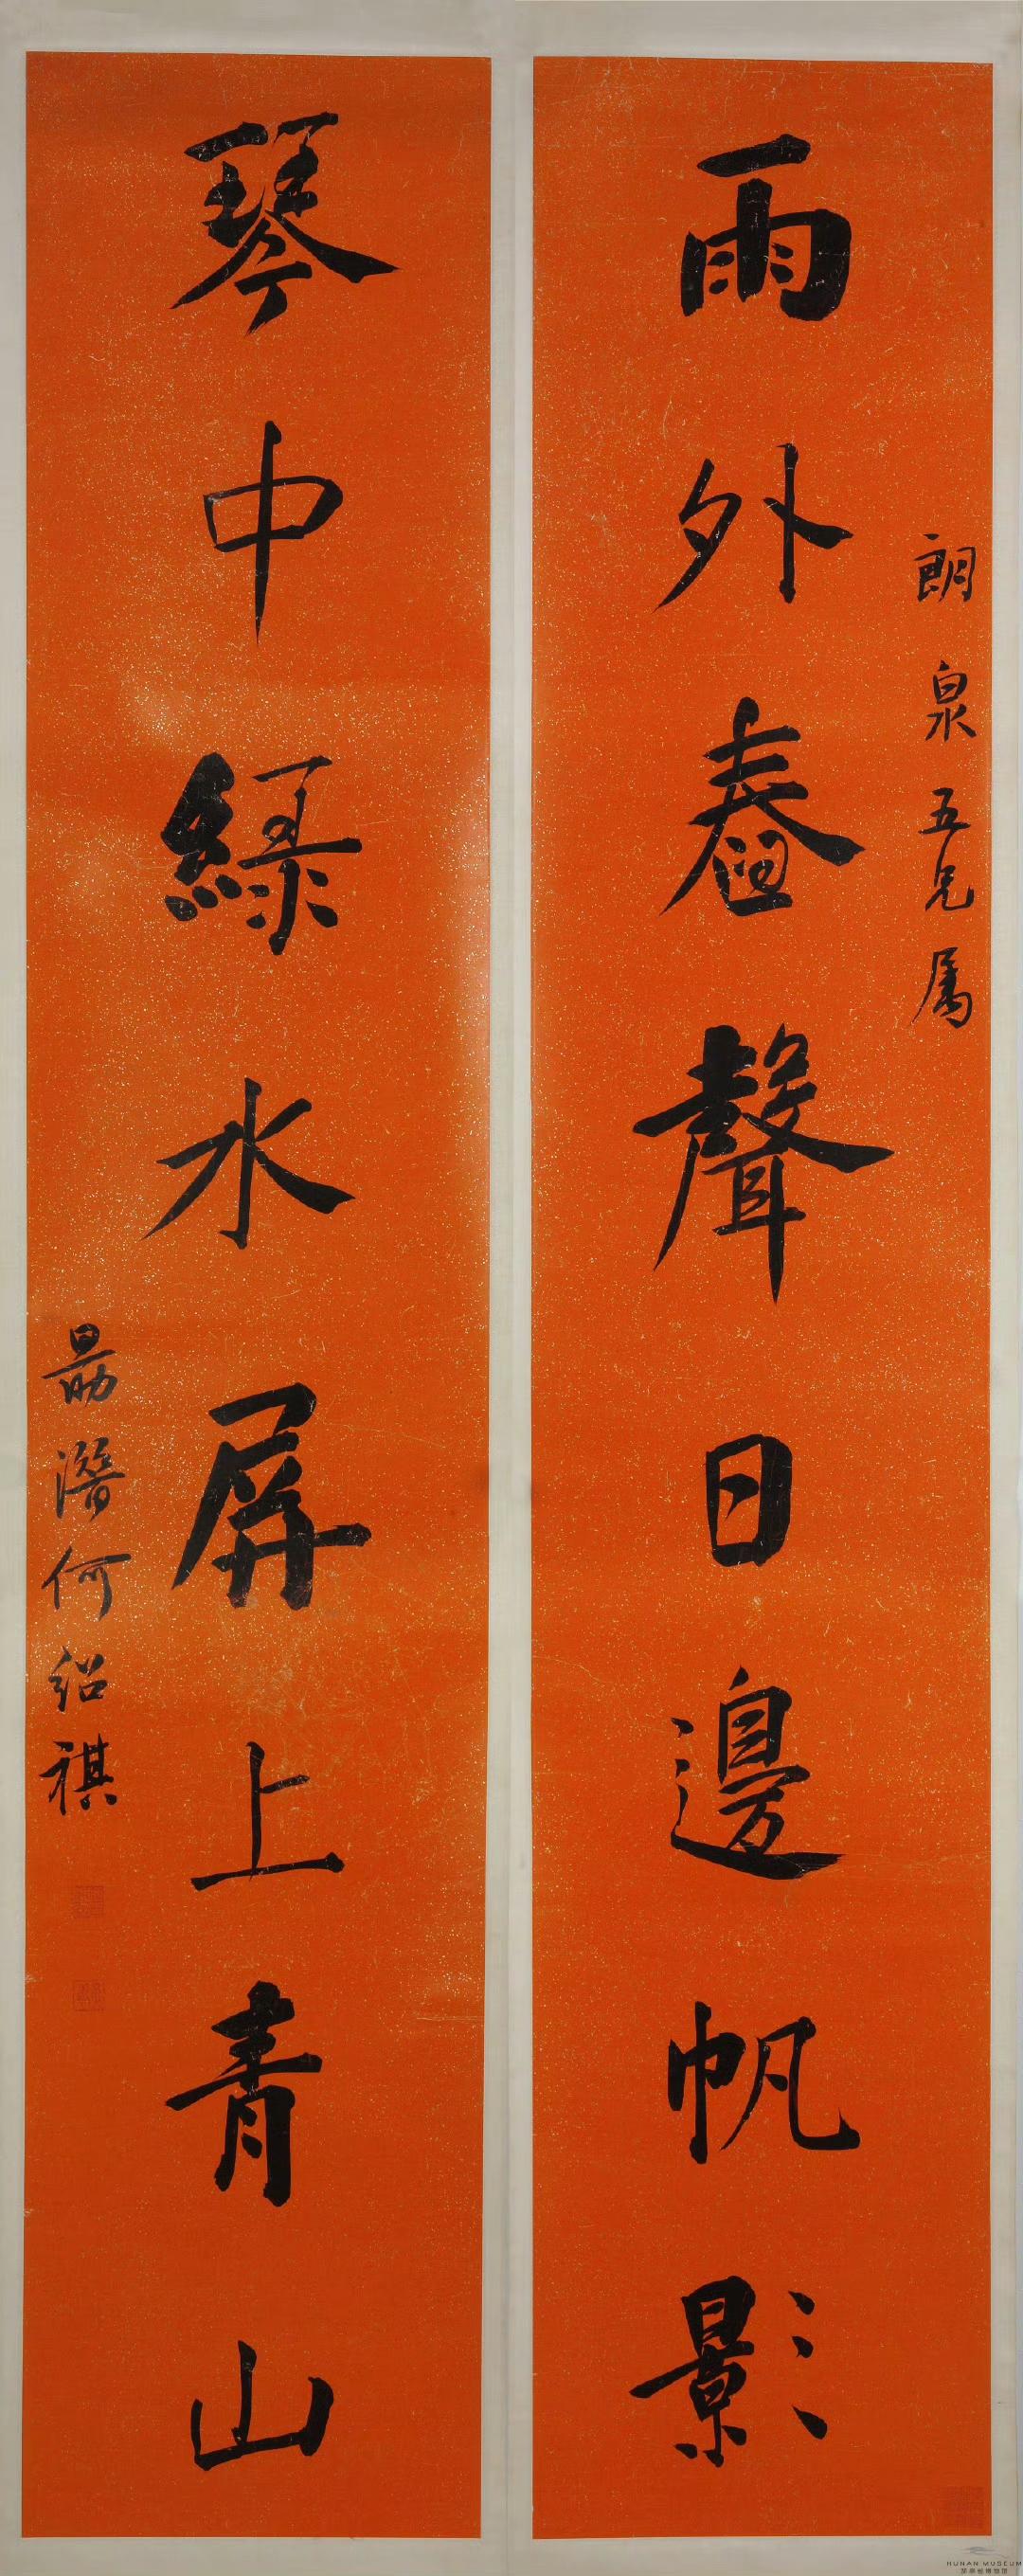 朗泉五兄属
雨外舂聲日邊帆影
琴中綠水屏上青山
勗潛何紹祺
HUNAN MUSEUM
湖南省博物館